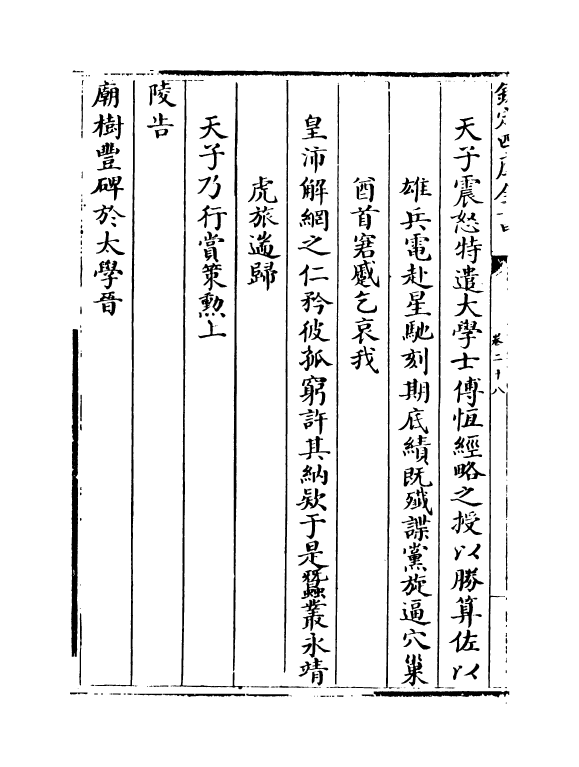 欽定四庫全書
卷二十八
天子震怒特遣大學士傅恆經略之授以勝算佐以
雄兵電赴星馳刻期底績既殲諜黨旋逼穴巢
酋首窘蹙乞哀我
皇沛解網之仁矜彼孤窮許其納欵于是蠶叢永靖
虎旅遄歸
天子乃行賞策勲上
陵告
廟樹豐碑於太學晉